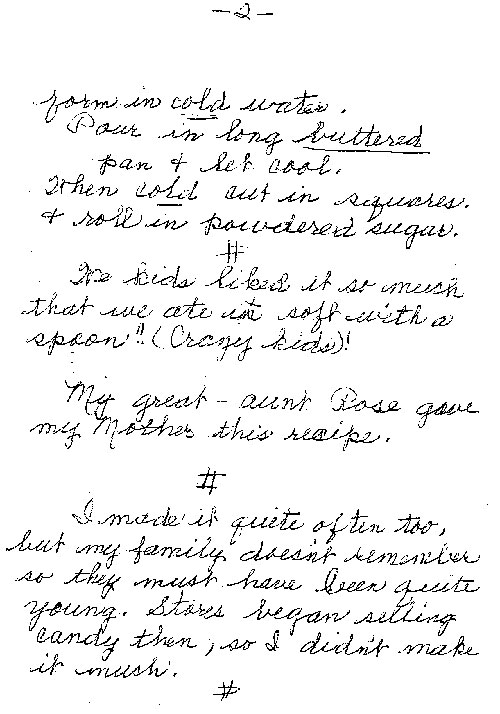 -2-
form in cold water.
Pour in long buttered
pan & let cool.
When cold cut in squares.
& roll in powdered sugar.
#
We kids liked it so much
that we ate it soft with a
spoon!! (Crazy kids)!
My great-aunt Rose gave
my Mother this recipe.
#
I made it quite often too,
but my family doesn't remember
so they must have been quite
young. Stores began selling
candy then, so I didn't make
it much.
#